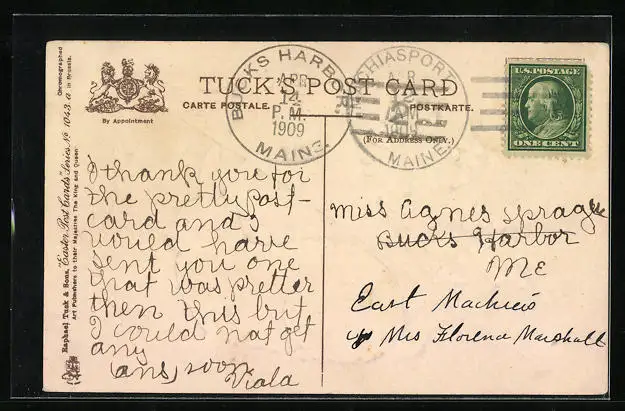 TUCK'S POST CARD
CARTE POSTALE.
POSTKARTE.
(FOR ADDRESS ONLY.)
By Appointment
Raphael Tuck & Sons, "Easter Post Cards" Series No 1043. a
Art Publishers to their Majesties The King and Queen
Chromographed in Brussels.
BUCKS HARBOR.
APR
14
P.M.
1909
MAINE.
CHIASPORT
MAINE.
1909
U.S. POSTAGE
ONE CENT
I thank you for
the pretty post-
card and I
would have
sent you one
that was pretter
then this but
I could not get
any
(ans) soon
Viola
Miss Agnes Sprague
Bucks Harbor
ME
East Machias
Mrs Florena Marshall